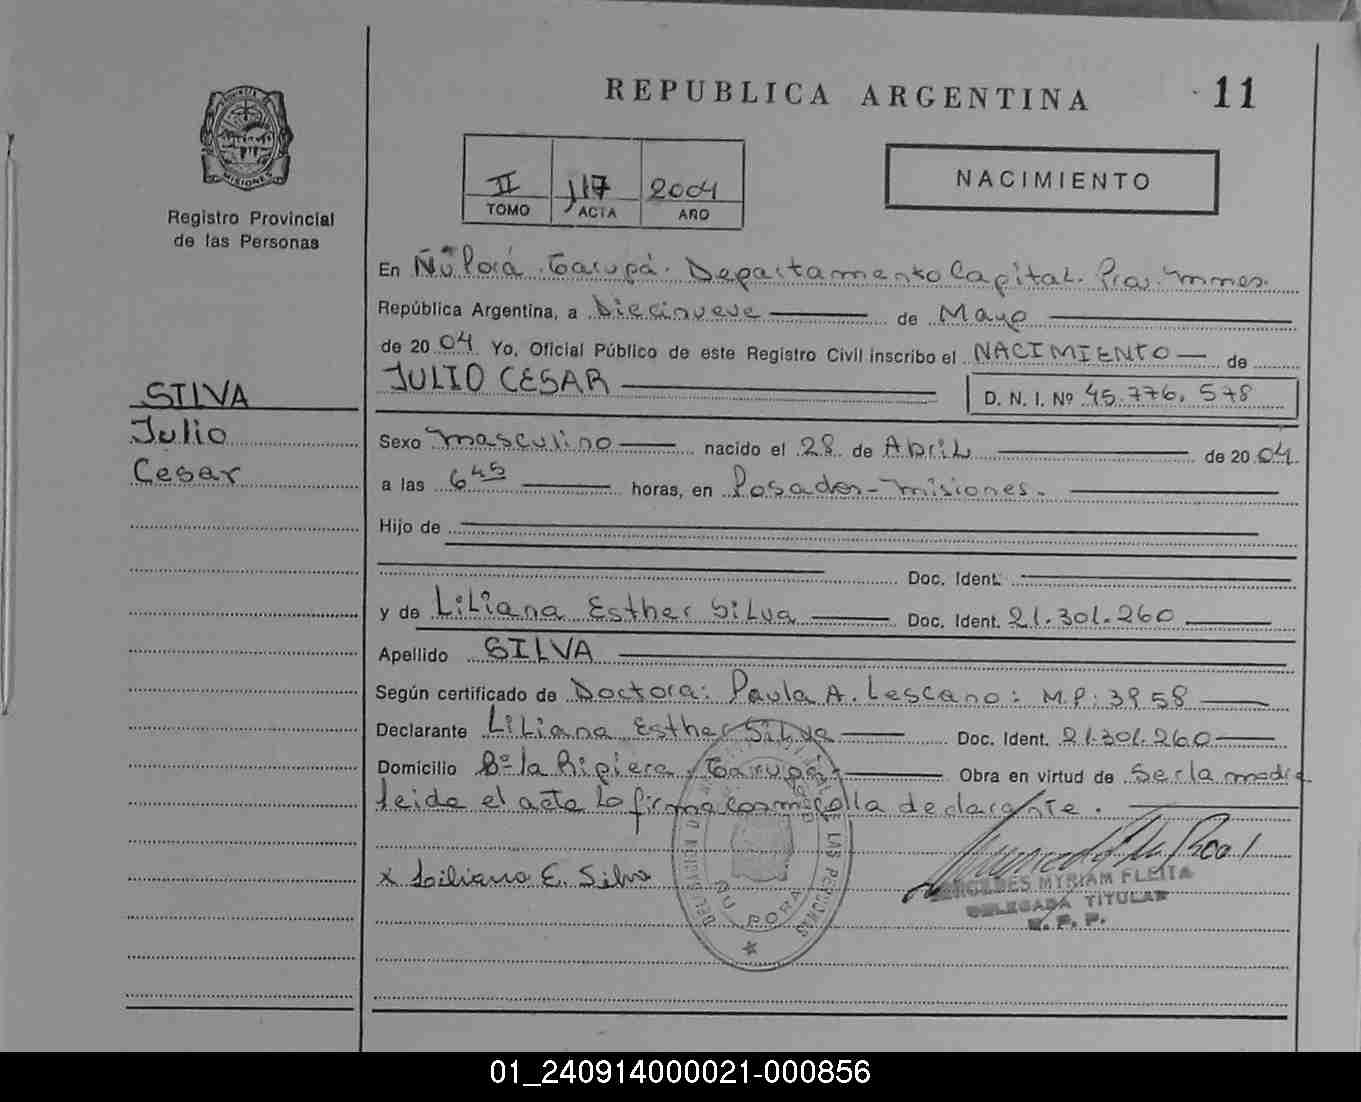 REPUBLICA ARGENTINA
11
PROVINCIA DE MISIONES
Registro Provincial
de las Personas
II 117 2004
TOMO ACTA AÑO
NACIMIENTO
En Ñu Porá. Garupá. Departamento Capital. Pcia. Mnes.
República Argentina, a Diecinueve de Mayo
de 2004 Yo, Oficial Público de este Registro Civil inscribo el NACIMIENTO de
JULIO CESAR D. N. I. Nº 45.776.578
SILVA
Julio
Cesar
Sexo masculino nacido el 28 de Abril de 2004
a las 6 45 horas, en Posadas - misiones.
Hijo de
Doc. Ident.
y de Liliana Esther Silva Doc. Ident. 21.301.260
Apellido SILVA
Según certificado de Doctora: Paula A. Lescano: M.P: 3958
Declarante Liliana Esther Silva Doc. Ident. 21.301.260
Domicilio Bº la Ripiera, Garupá. Obra en virtud de Ser la madre
leida el acta la firma conmigo la declarante.
x Liliana E. Silva
DE LAS PERSONAS
ÑU PORA
MERCEDES MYRIAM FLEITA
DELEGADA TITULAR
R. P. P.
01_240914000021-000856